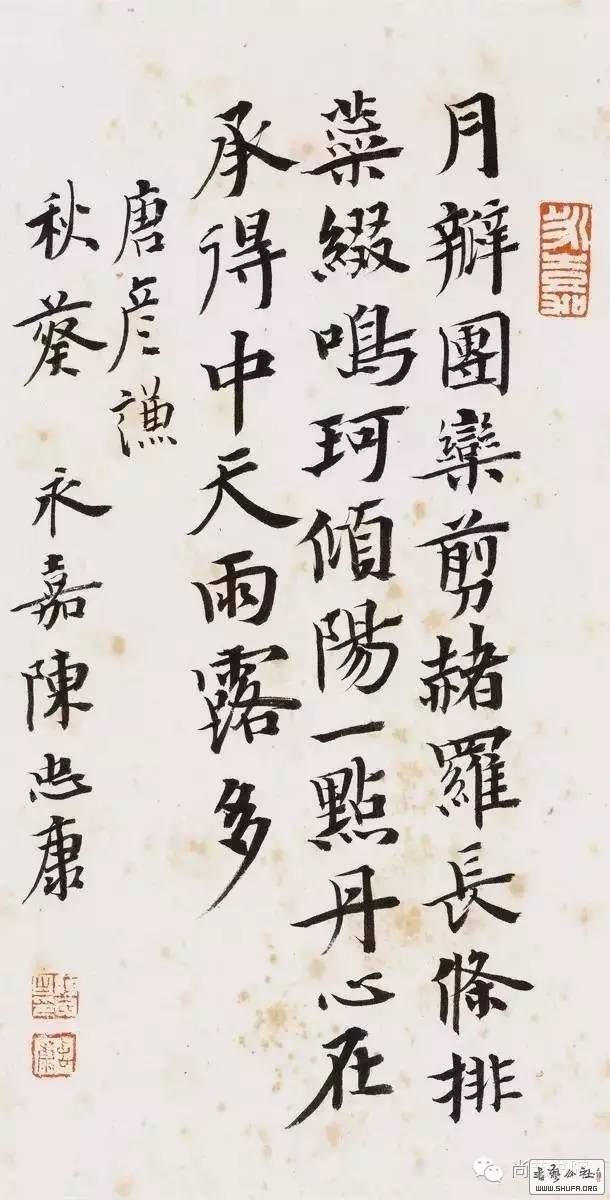 月瓣團欒剪赭羅長條排
蘂綴鳴珂傾陽一點丹心在
承得中天雨露多
唐彦謙
秋葵 永嘉陳忠康
尚
書藝公社
WWW.SHUFA.ORG